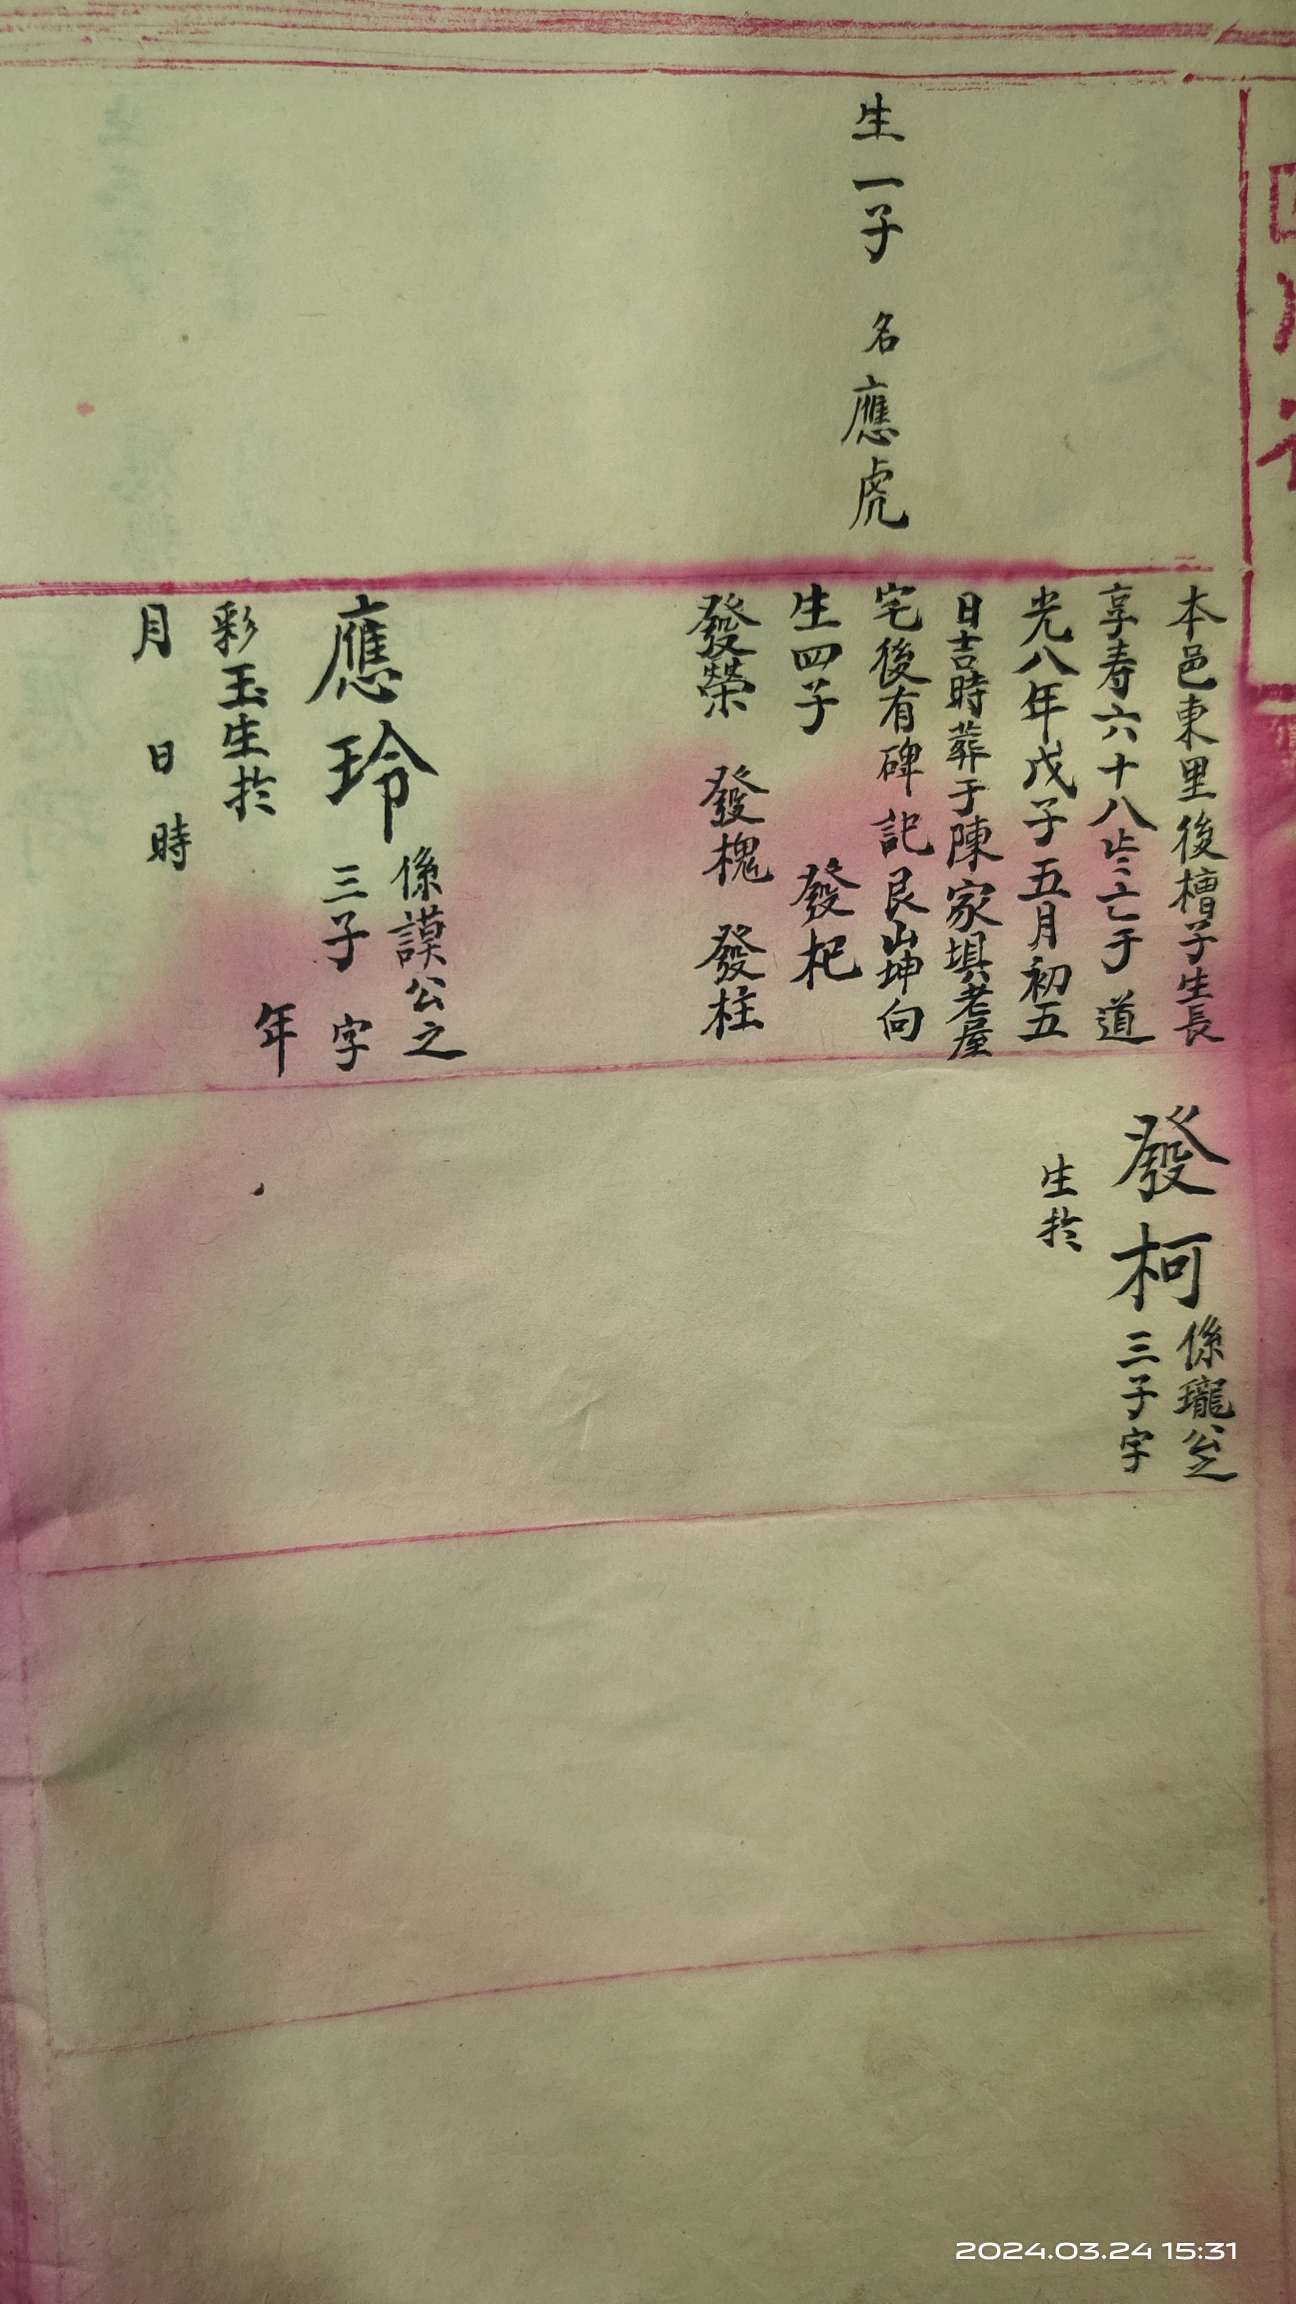 生一子 名應虎
本邑東里後槽子生長
享寿六十八 亡于 道
光八年戊子五月初五
日吉時葬于陳家埧老屋
宅後有碑記艮山坤向
生四子 發杞
發榮 發槐 發柱
應玲 係謨公之
三子 字
彩玉生於 年
月 日 時
發柯 係瓏公之
三子字
生於
2024.03.24 15:31